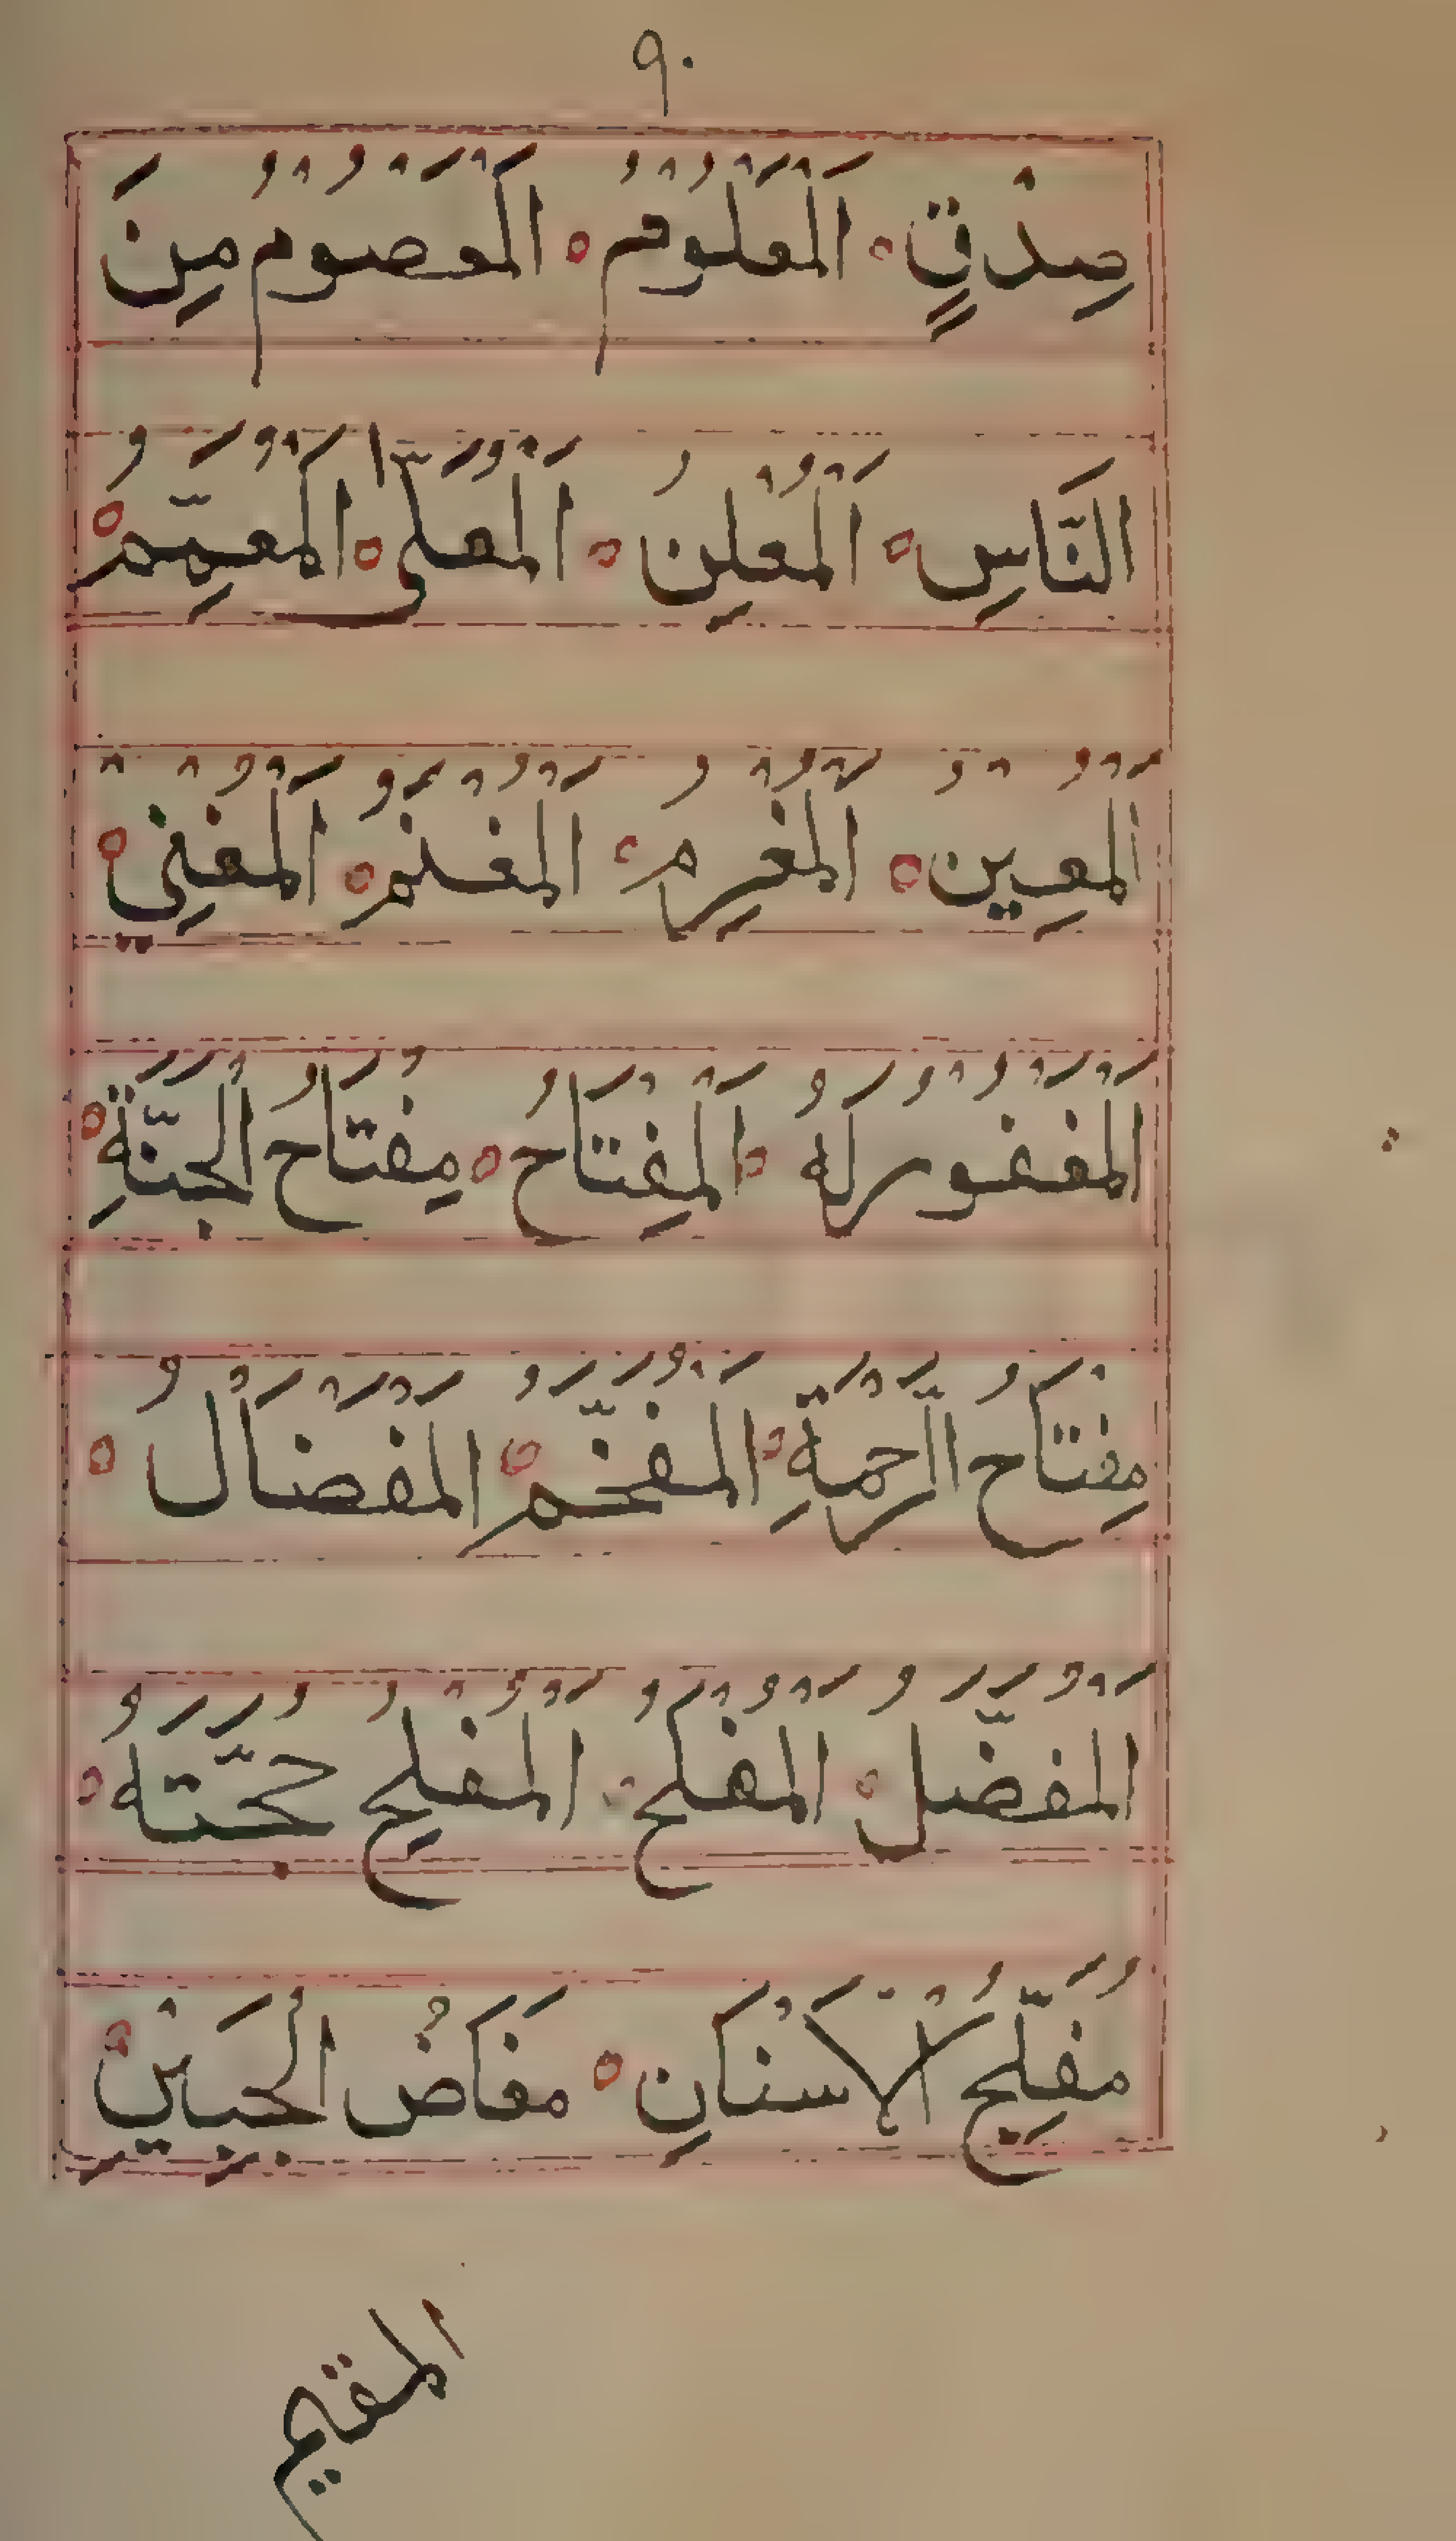 ٩٠
صِدْقٍ ٥ اَلْمَعْلُوْمُ ٥ اَلْمَعْصُوْمُ مِنَ
النَّاسِ ٥ اَلْمُعْلِنُ ٥ اَلْمُعَلَّى ٥ اَلْمُعَمِّمُ ٥
اَلْمُعِيْنُ ٥ اَلْمُغْرِمُ ٥ اَلْمُغْنَمُ ٥ اَلْمُغْنِيْ ٥
اَلْمَغْفُوْرُ لَهُ ٥ اَلْمِفْتَاحُ ٥ مِفْتَاحُ الْجَنَّةِ ٥
مِفْتَاحُ الرَّحْمَةِ ٥ اَلْمُفَخَّمُ ٥ اَلْمِفْضَالُ ٥
اَلْمُفَضَّلُ ٥ اَلْمُفْلَحُ ٥ اَلْمُفْلِحُ حُجَّتَهُ ٥
مُفَلَّجُ الْاَسْنَانِ ٥ مُفَاضُ الْجَبِيْنِ ٥
المقيم